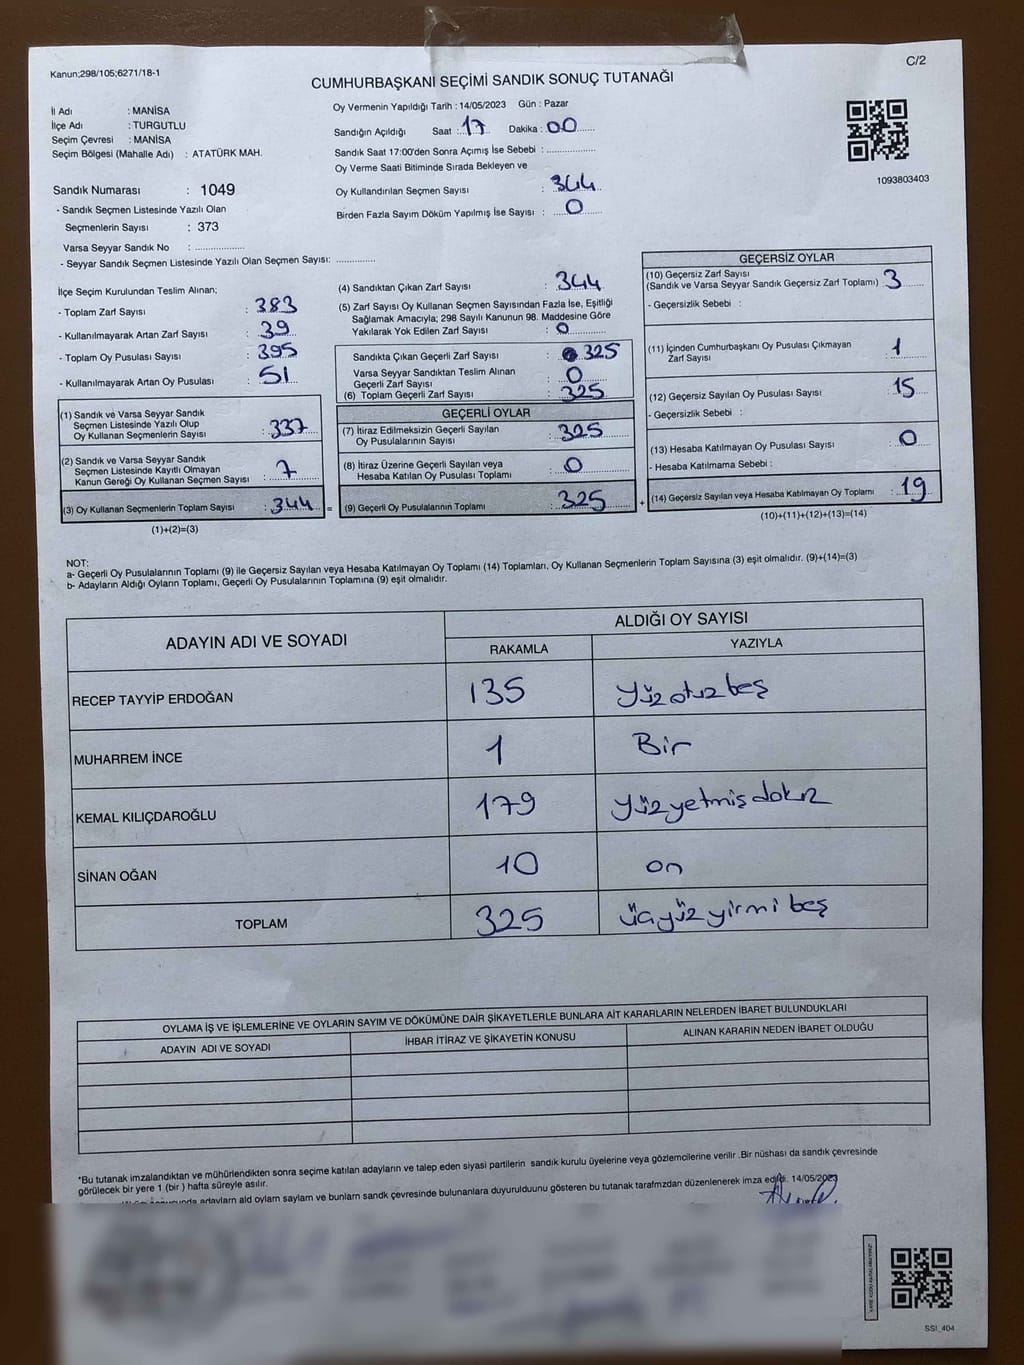 Kanun;298/105;6271/18-1
C/2
CUMHURBAŞKANI SEÇİMİ SANDIK SONUÇ TUTANAĞI
İl Adı : MANİSA
İlçe Adı : TURGUTLU
Seçim Çevresi : MANİSA
Seçim Bölgesi (Mahalle Adı) : ATATÜRK MAH.
Oy Vermenin Yapıldığı Tarih : 14/05/2023 Gün : Pazar
Sandığın Açıldığı Saat : 17 Dakika : 00
Sandık Saat 17:00'den Sonra Açımış İse Sebebi :
Oy Verme Saati Bitiminde Sırada Bekleyen ve
Oy Kullandırılan Seçmen Sayısı : 344
Birden Fazla Sayım Döküm Yapılmış İse Sayısı : 0
1093803403
Sandık Numarası : 1049
- Sandık Seçmen Listesinde Yazılı Olan
Seçmenlerin Sayısı : 373
Varsa Seyyar Sandık No :
- Seyyar Sandık Seçmen Listesinde Yazılı Olan Seçmen Sayısı:
İlçe Seçim Kurulundan Teslim Alınan;
- Toplam Zarf Sayısı : 383
- Kullanılmayarak Artan Zarf Sayısı : 39
- Toplam Oy Pusulası Sayısı : 395
- Kullanılmayarak Artan Oy Pusulası : 51
(1) Sandık ve Varsa Seyyar Sandık
Seçmen Listesinde Yazılı Olup
Oy Kullanan Seçmenlerin Sayısı : 337
(2) Sandık ve Varsa Seyyar Sandık
Seçmen Listesinde Kayıtlı Olmayan
Kanun Gereği Oy Kullanan Seçmen Sayısı : 7
(3) Oy Kullanan Seçmenlerin Toplam Sayısı : 344 =
(1)+(2)=(3)
(4) Sandıktan Çıkan Zarf Sayısı : 344
(5) Zarf Sayısı Oy Kullanan Seçmen Sayısından Fazla İse, Eşitliği
Sağlamak Amacıyla; 298 Sayılı Kanunun 98. Maddesine Göre
Yakılarak Yok Edilen Zarf Sayısı : 0
Sandıkta Çıkan Geçerli Zarf Sayısı : 325
Varsa Seyyar Sandıktan Teslim Alınan
Geçerli Zarf Sayısı : 0
(6) Toplam Geçerli Zarf Sayısı : 325
GEÇERLİ OYLAR
(7) İtiraz Edilmeksizin Geçerli Sayılan
Oy Pusulalarının Sayısı : 325
(8) İtiraz Üzerine Geçerli Sayılan veya
Hesaba Katılan Oy Pusulası Toplamı : 0
(9) Geçerli Oy Pusulalarının Toplamı : 325 +
GEÇERSİZ OYLAR
(10) Geçersiz Zarf Sayısı
(Sandık ve Varsa Seyyar Sandık Geçersiz Zarf Toplamı) : 3
- Geçersizlik Sebebi :
(11) İçinden Cumhurbaşkanı Oy Pusulası Çıkmayan
Zarf Sayısı : 1
(12) Geçersiz Sayılan Oy Pusulası Sayısı : 15
- Geçersizlik Sebebi :
(13) Hesaba Katılmayan Oy Pusulası Sayısı : 0
- Hesaba Katılmama Sebebi :
(14) Geçersiz Sayılan veya Hesaba Katılmayan Oy Toplamı : 19
(10)+(11)+(12)+(13)=(14)
NOT:
a- Geçerli Oy Pusulalarının Toplamı (9) ile Geçersiz Sayılan veya Hesaba Katılmayan Oy Toplamı (14) Toplamları, Oy Kullanan Seçmenlerin Toplam Sayısına (3) eşit olmalıdır. (9)+(14)=(3)
b- Adayların Aldığı Oyların Toplamı, Geçerli Oy Pusulalarının Toplamına (9) eşit olmalıdır.
ADAYIN ADI VE SOYADI
ALDIĞI OY SAYISI
RAKAMLA YAZIYLA
RECEP TAYYİP ERDOĞAN 135 Yüz otuz beş
MUHARREM İNCE 1 Bir
KEMAL KILIÇDAROĞLU 179 Yüzyetmişdokuz
SİNAN OĞAN 10 on
TOPLAM 325 üçyüz yirmi beş
OYLAMA İŞ VE İŞLEMLERİNE VE OYLARIN SAYIM VE DÖKÜMÜNE DAİR ŞİKAYETLERLE BUNLARA AİT KARARLARIN NELERDEN İBARET BULUNDUKLARI
ADAYIN ADI VE SOYADI İHBAR İTİRAZ VE ŞİKAYETİN KONUSU ALINAN KARARIN NEDEN İBARET OLDUĞU
*Bu tutanak imzalandıktan ve mühürlendikten sonra seçime katılan adayların ve talep eden siyasi partilerin sandık kurulu üyelerine veya gözlemcilerine verilir .Bir nüshası da sandık çevresinde
görülecek bir yere 1 (bir ) hafta süreyle asılır.
adayların ald oyların sayılam ve bunların sandk çevresinde bulunanlara duyurulduunu gösteren bu tutanak tarafmzdan düzenlenerek imza edildi. 14/05/2023
SSI_404